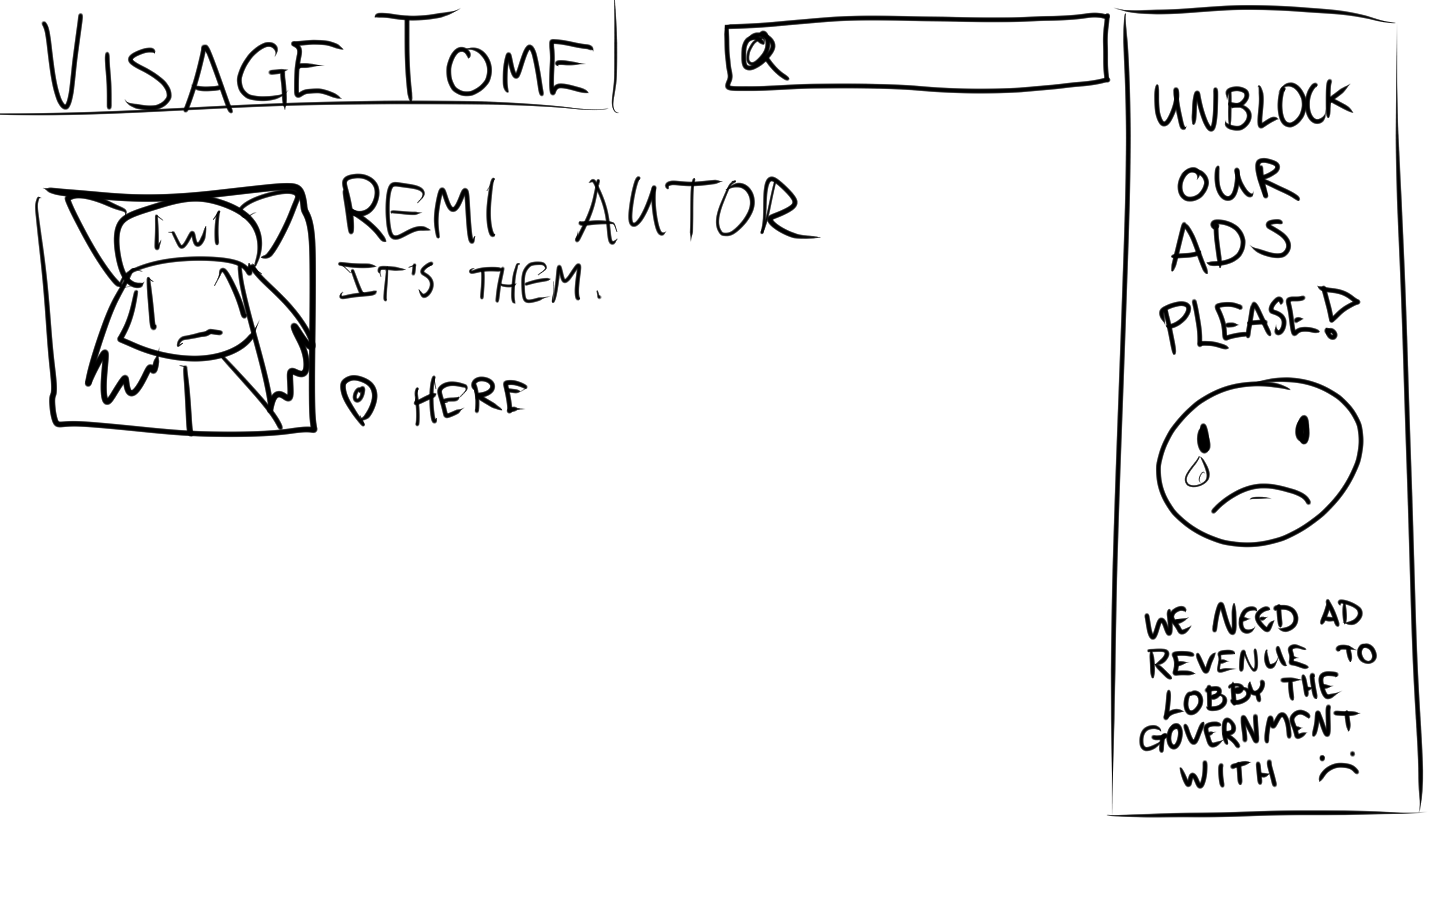 VISAGE TOME
IwI
REMI AUTOR
IT'S THEM.
HERE
UNBLOCK
OUR
ADS
PLEASE!
WE NEED AD
REVENUE TO
LOBBY THE
GOVERNMENT
WITH :(